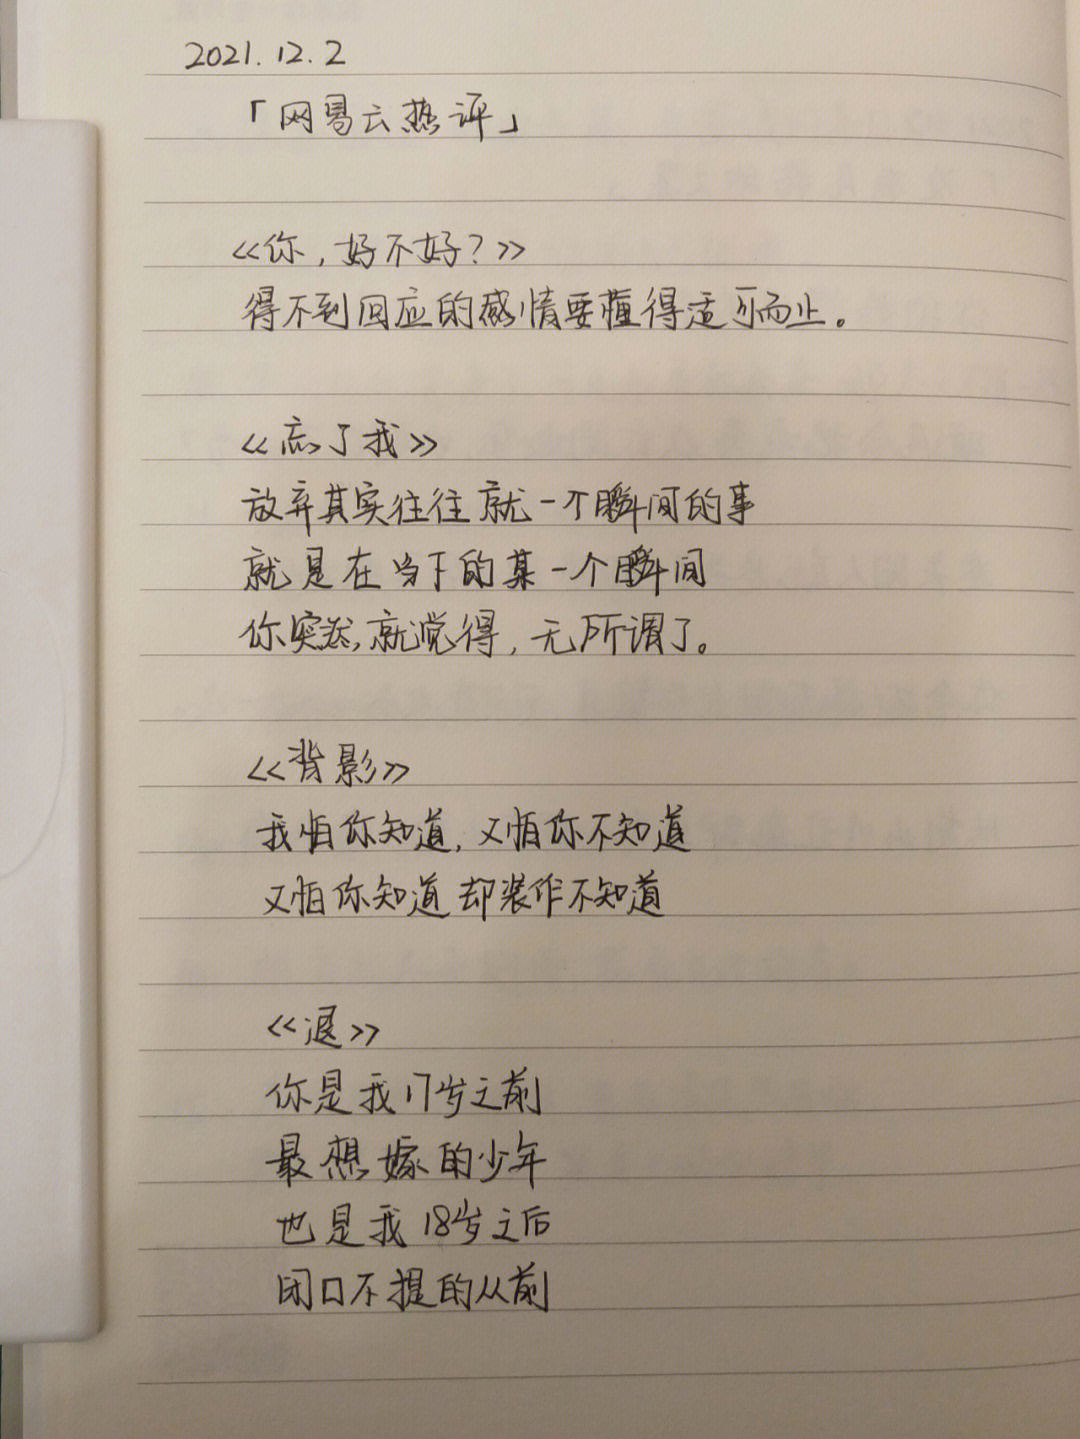 2021.12.2
「网易云热评」
《你,好不好?》
得不到回应的感情要懂得适可而止。
《忘了我》
放弃其实往往就一个瞬间的事
就是在当下的某一个瞬间
你突然,就觉得,无所谓了。
《背影》
我怕你知道,又怕你不知道
又怕你知道却装作不知道
《退》
你是我17岁之前
最想嫁的少年
也是我18岁之后
闭口不提的从前